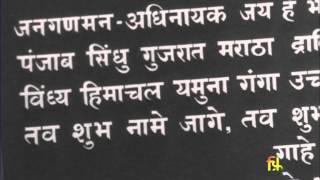 जनगणमन-अधिनायक जय हे भ
पंजाब सिंधु गुजरात मराठा द्रावि
विंध्य हिमाचल यमुना गंगा उच
तव शुभ नामे जागे, तव शुभ
गाहे